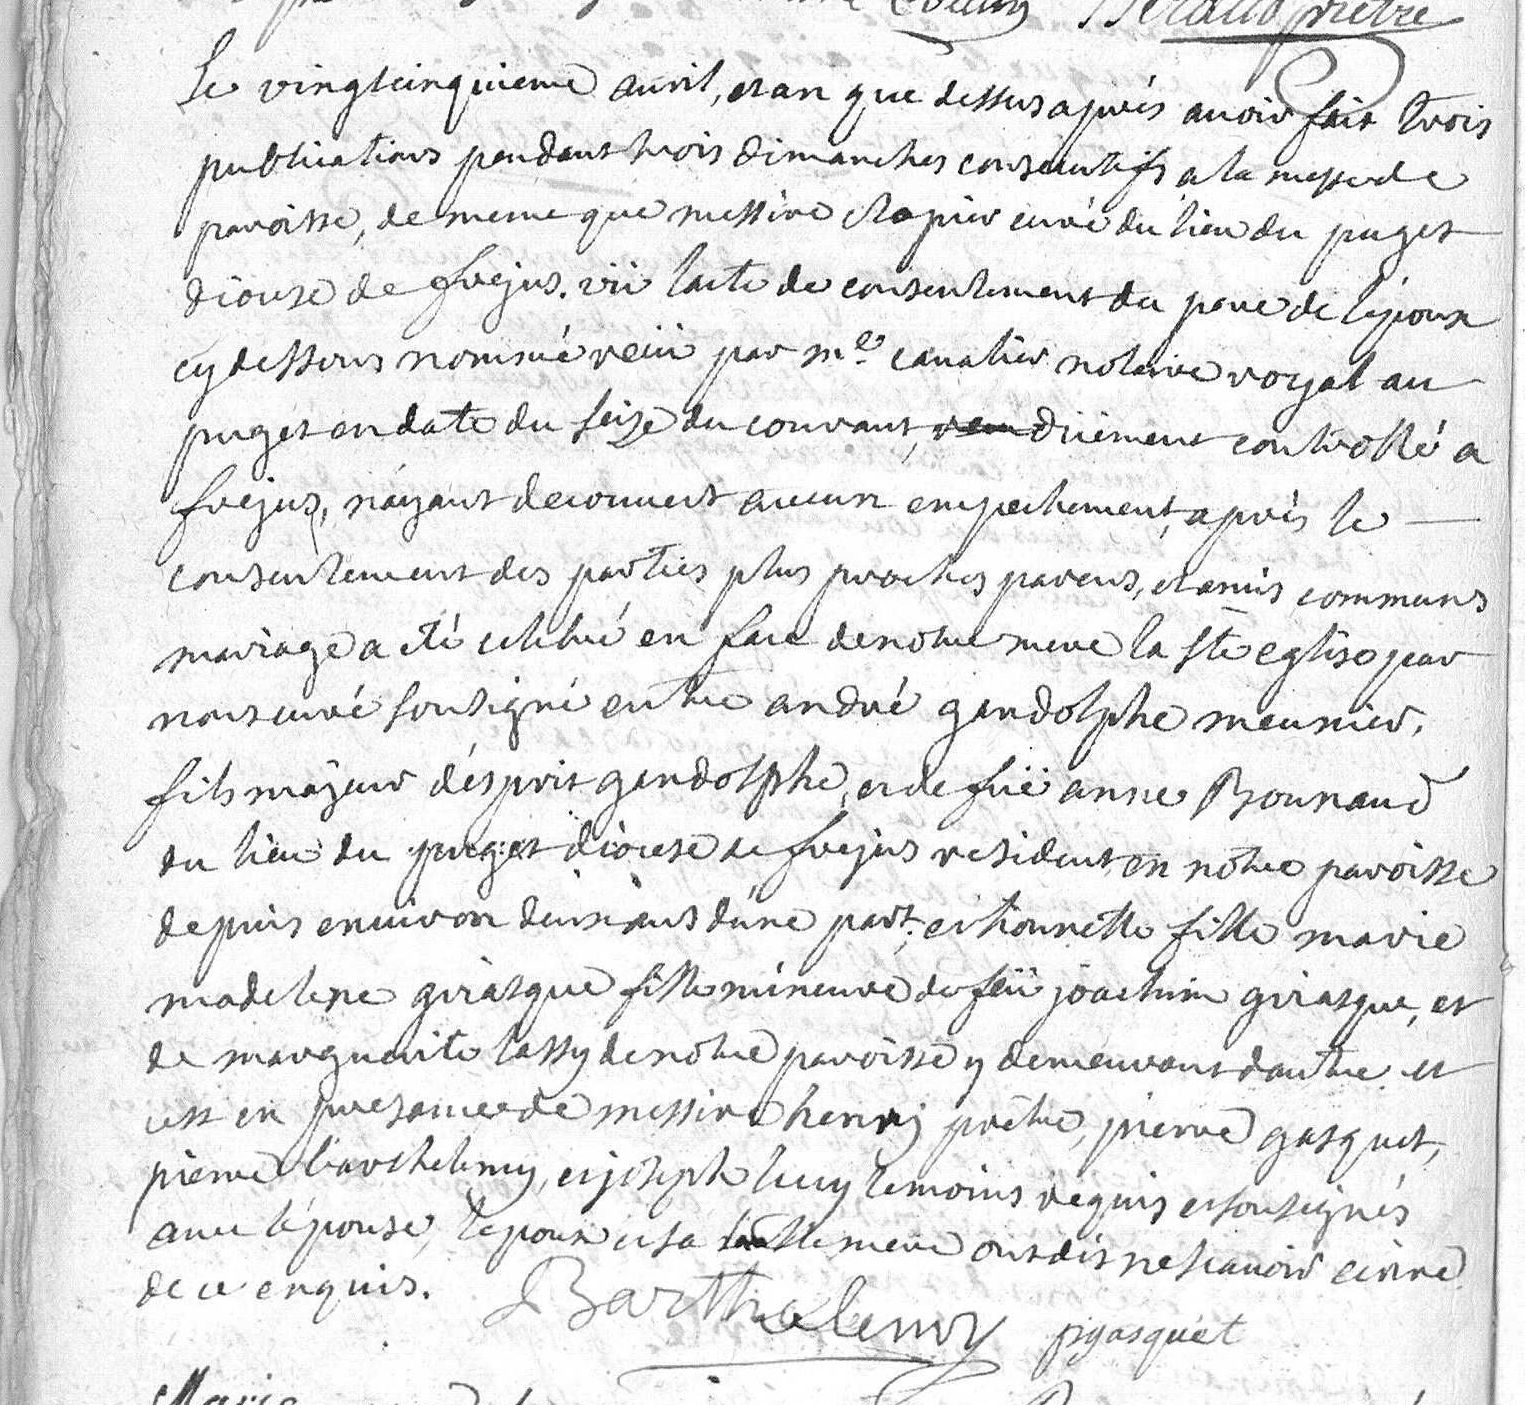 prêtre
Le vingtcinquieme avril, et an que dessus après avoir fait trois
publications pendant trois dimanches consecutifs a la messe de
paroisse, de meme que messire clapier curé du lieu du puget
diocese de frejus. vü l'acte de consentement du pere de l'epoux
cy dessous nommé reçu par me cavalier notaire royal au
puget en date du seize du courant, düement controllé a
frejus, n'ayant decouvert aucun empechement, après le
consentement des parties plus proches parens, et amis communs
mariage a eté celebré en face de notre mere la ste eglise par
nous curé sousigné entre andré gandolphe meunier,
fils majeur d'esprit gandolphe, et de füe anne Bonnaud
du lieu du puget diocese de frejus resident en notre paroisse
depuis environ deux ans d'une part; et honnette fille marie
madelene girasque fille mineure de feü joachim girasque, et
de marguerite lassy de notre paroisse y demeurant d'autre et
cest en presance de messire henry prêtre, pierre gasquet,
pierre barthelemy, et joseph lucy temoins requis et sousignés
avec l'epouse, l'epoux et sa belle mere ont dit ne scavoir ecrire
de ce enquis.
Barthelemy pgasquet
Marie